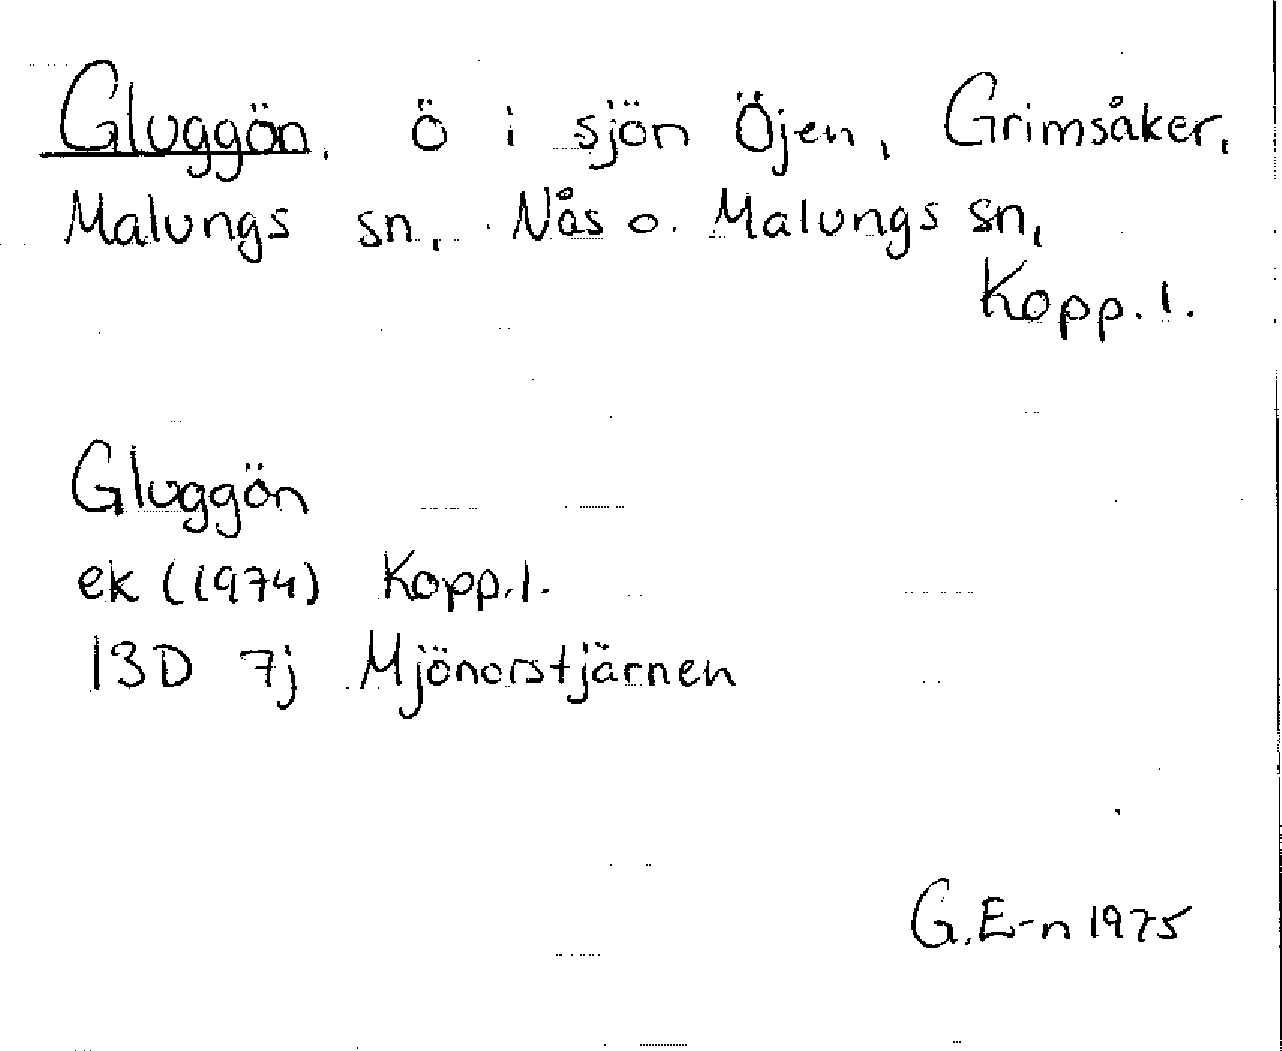 Gluggön, ö i sjön Öjen, Grimsåker,
Malungs sn, Nås o. Malungs sn,
Kopp. l.
Gluggön
ek (1974) Kopp. l.
13D 7j Mjönorstjärnen
G. E-n 1975